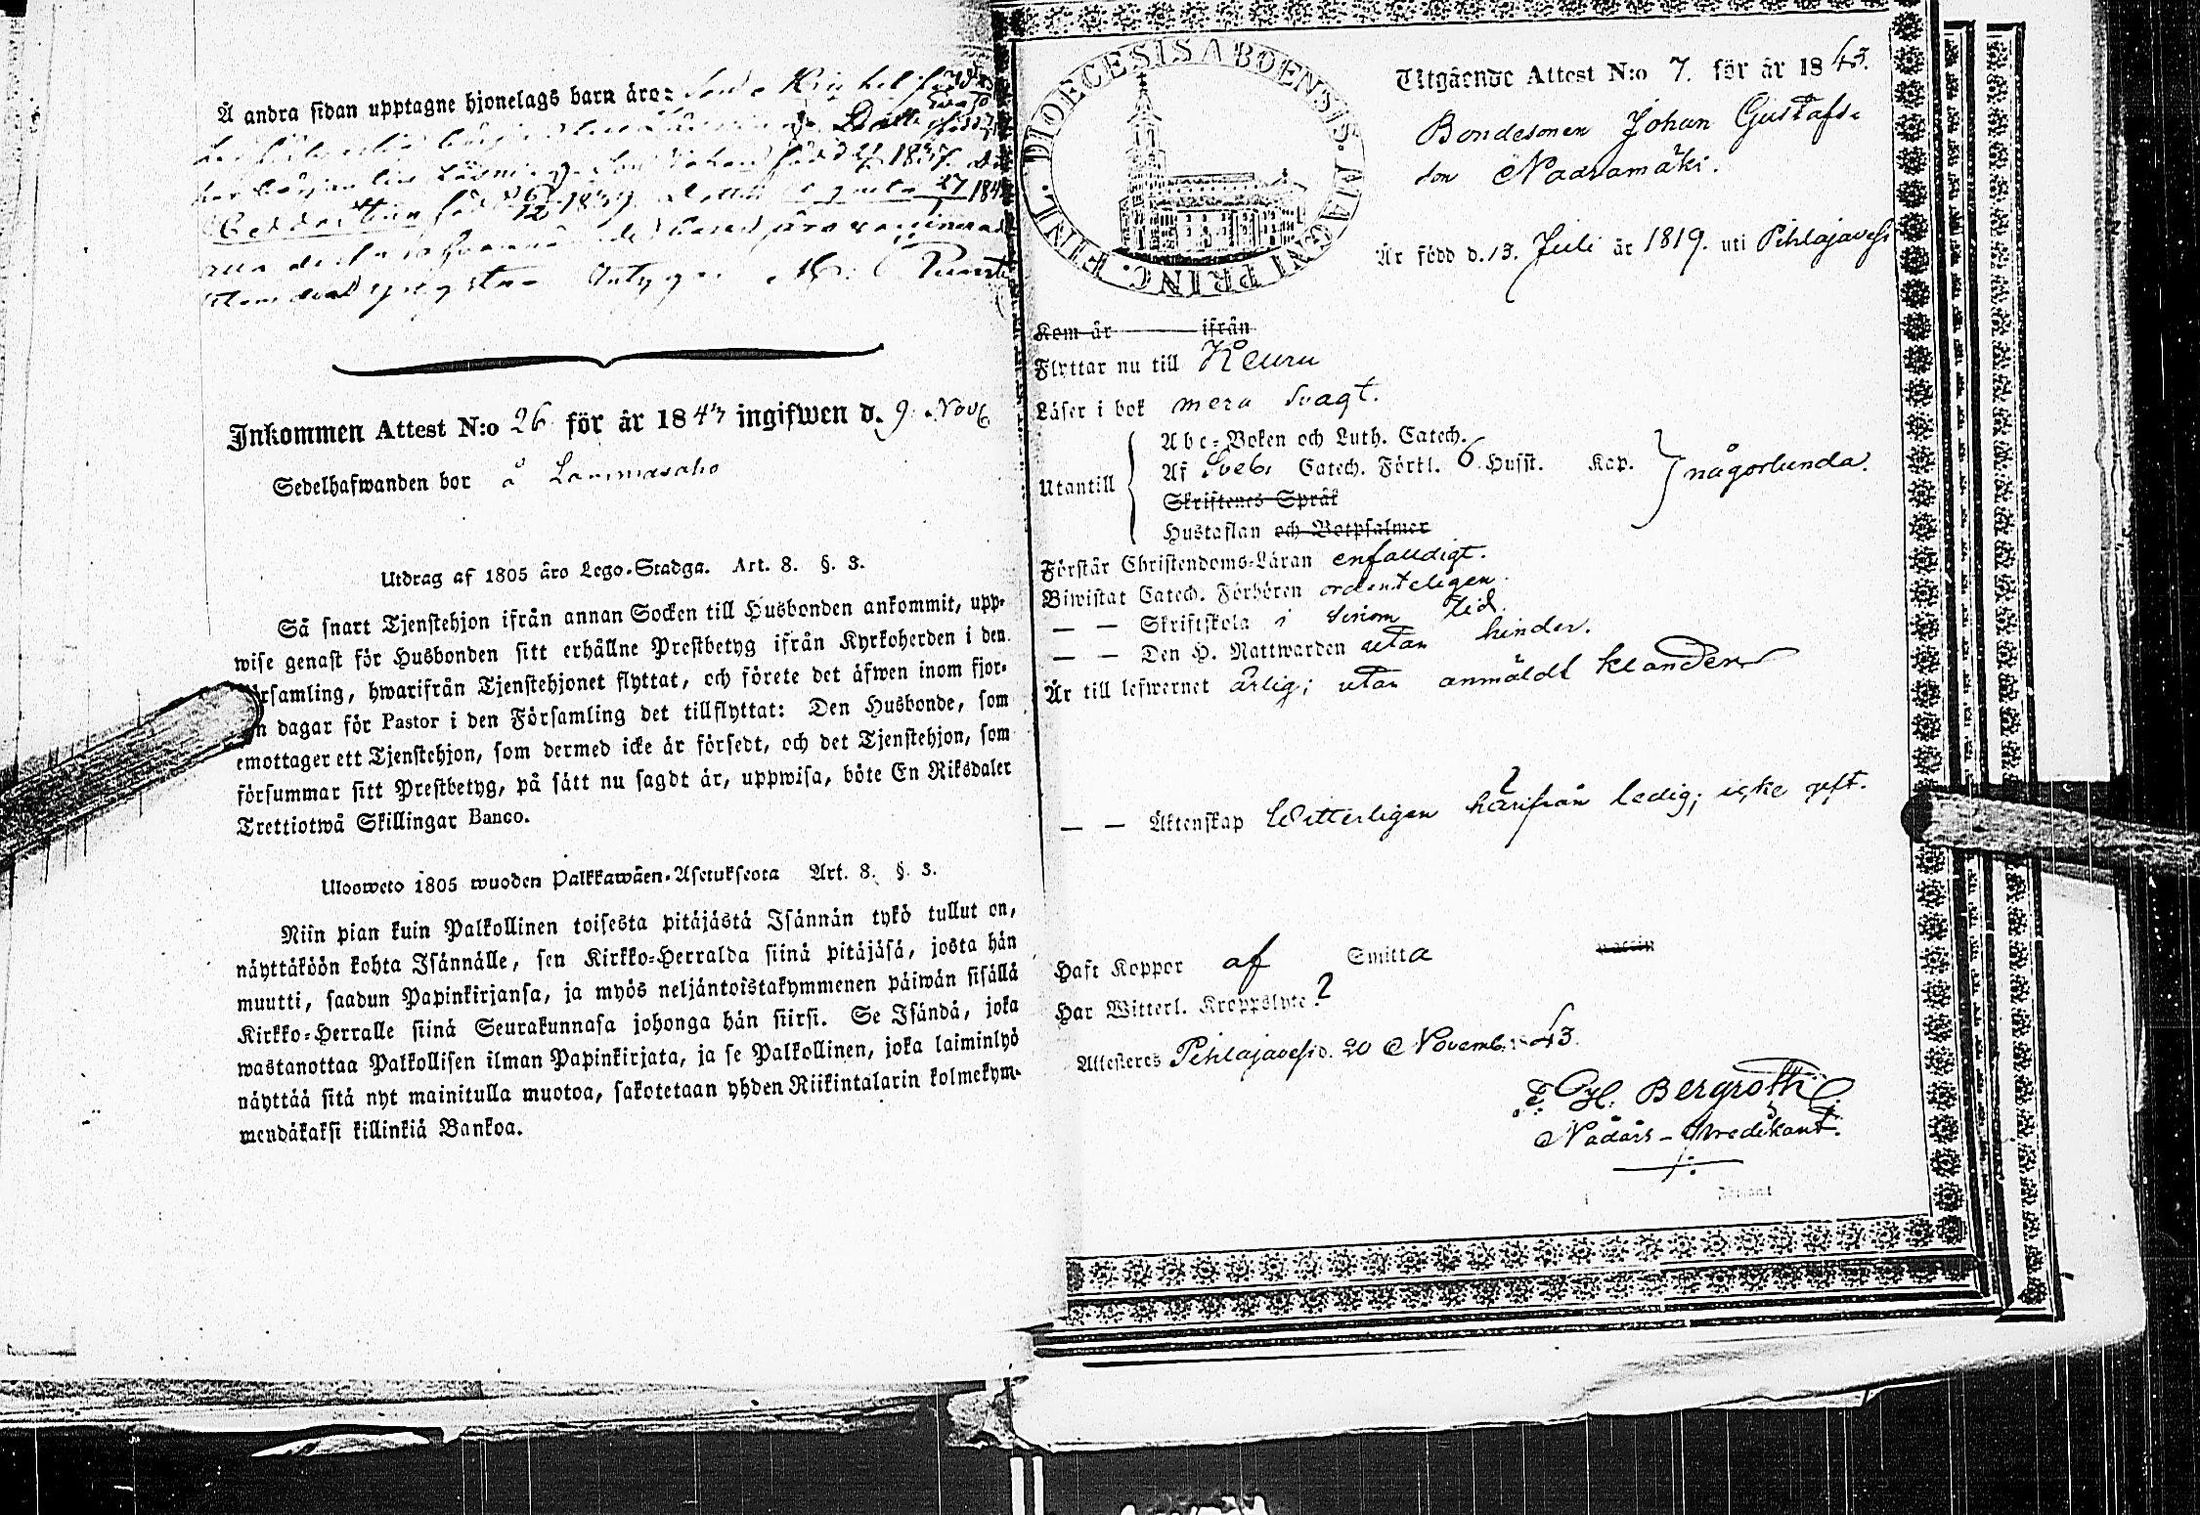 Å andra sidan upptagne hjonelags barn äro:
född
1839
Intygar
Inkommen Attest N:o 26 för år 1843 ingifwen d. 9. Nov
Sedelhafwanden bor å Lammasaho
Utdrag af 1805 års Lego-Stadga. Art. 8. §. 3.
Så snart Tjenstehjon ifrån annan Socken till Husbonden ankommit, upp-
wise genast för Husbonden sitt erhållne Prestbetyg ifrån Kyrkoherden i den
församling, hwarifrån Tjenstehjonet flyttat, och förete det äfwen inom fjor-
dagar för Pastor i den Församling det tillflyttat: Den Husbonde, som
emottager ett Tjenstehjon, som dermed icke är försedt, och det Tjenstehjon, som
försummar sitt Prestbetyg, på sätt nu sagdt är, uppwisa, böte En Riksdaler
Trettiotwå Skillingar Banco.
Ulosweto 1805 wuoden Palkkawäen-Asetuksesta Art. 8. §. 3.
Niin pian kuin Palkollinen toisesta pitäjästä Isännän tykö tullut on,
näyttäköön kohta Isännälle, sen Kirkko-Herralda siinä pitäjäsä, josta hän
muutti, saadun Papinkirjansa, ja myös neljäntoistakymmenen päiwän sisällä
Kirkko-Herralle siinä Seurakunnasa johonga hän siirsi. Se Isändä, joka
wastanottaa Palkollisen ilman Papinkirjata, ja se Palkollinen, joka laiminlyö
näyttää sitä nyt mainitulla muotoa, sakotetaan yhden Riikintalarin kolmekym-
mendäkaksi killinkiä Bankoa.
DIOECESIS ABOENSIS. MAGNI PRINC. FINL.
Utgående Attest N:o 7. för år 1843.
Bondesonen Johan Gustafs-
son Nadramäki.
Är född d. 13. Juli år 1819. uti Pihlajavesi
Kom år ifrån
Flyttar nu till Keuru
Läser i bok mera svagt.
Utantill
Abc-Boken och Luth. Catech.
Af Sveb. Catech. Förkl. 6 Husst. Kap.
någorlunda.
Skriftenes Språk
Hustaflan och Botpsalmer
Förstår Christendoms-Läran enfaldigt.
Biwistat Catech. Förhören ordenteligen.
— — Skriftskola i sinom tid.
— — Den H. Nattwarden utan hinder.
Är till lefwernet ärlig; utan anmäldt klander
— — Äktenskap Witterligen härifrån ledig; icke gift.
Haft Koppor af Smitta vaccin
Har Witterl. Kroppslyte ?
Attesteres Pihlajavesi d. 20 Novemb. 1843.
Bergroth
Nådårs-Predikant.